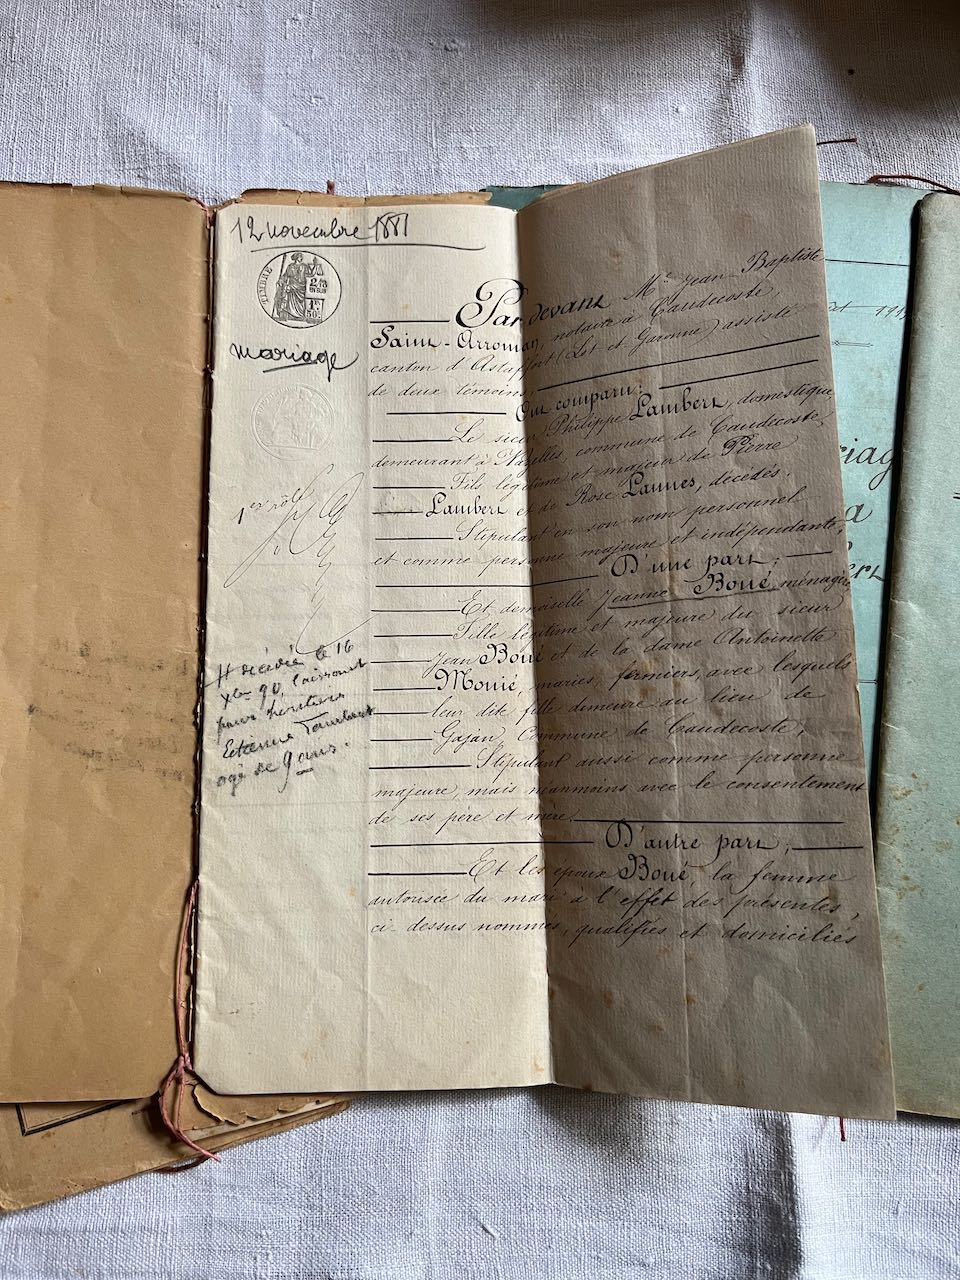 12 novembre 1881
TIMBRE
2/10
EN SUS
1F
50c
mariage
Par devant Me Jean-Baptiste
Saint-Arroman, notaire à Caudecoste,
canton d'Astaffort (Lot et Garonne) assisté
de deux témoins;
Ont comparu:
Le sieur Philippe Lambert, domestique
demeurant à commune de Caudecoste,
Fils légitime et majeur de Pierre
Lambert et de Rose Lannes, décédés.
Stipulant en son nom personnel
et comme personne majeure et indépendante;
D'une part;
Et demoiselle Jeanne Boué, ménagère,
Fille légitime et majeure du sieur
Jean Boué et de la dame Antoinette
Mouié, mariés, fermiers, avec lesquels
leur dite fille demeure au lieu de
Gajan, Commune de Caudecoste,
Stipulant aussi comme personne
majeure, mais néanmoins avec le consentement
de ses père et mère.
D'autre part;
Et les époux Boué, la femme
autorisée du mari à l'effet des présentes,
ci-dessus nommés, qualifiés et domiciliés
1er rôle
décédée le 16
Xbre 90, laissant
pour héritier
Etienne Lambert
agé de 9 ans.